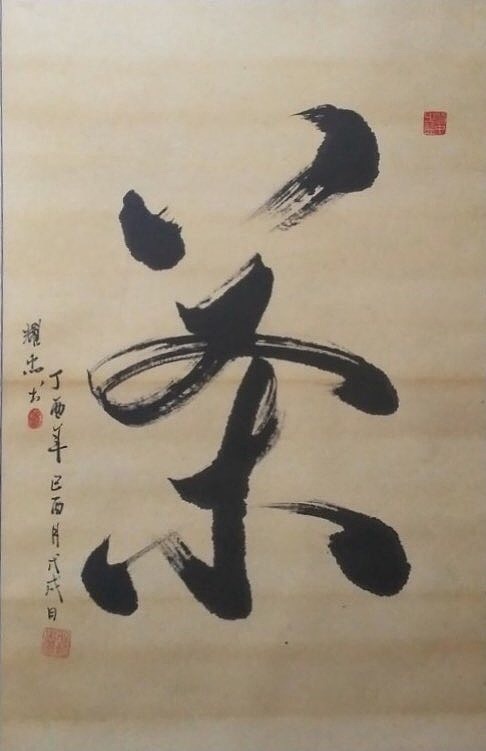 茶
丁酉年己酉月戊戌日
耀忠书